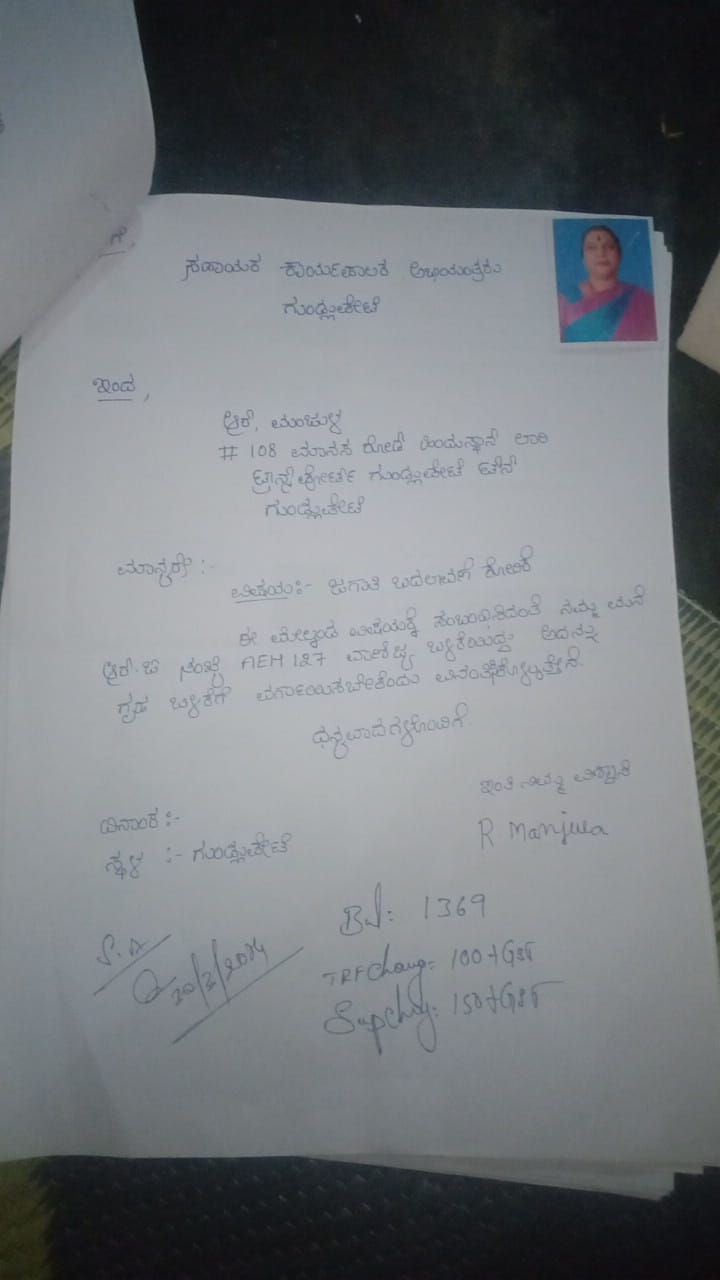 ಗೆ,
ಸಹಾಯಕ ಕಾರ್ಯಪಾಲಕ ಅಭಿಯಂತ್ರಕರು
ಗುಂಡ್ಲುಪೇಟೆ
ಇಂದ,
ಆರ್, ಮಂಜುಳ
# 108 ಮಾನಸ ರೋಡ್ ಹಿಂದುಸ್ಥಾನ್ ಲಾರಿ
ಟ್ರಾನ್ಸ್‌ಪೋರ್ಟ್ ಗುಂಡ್ಲುಪೇಟೆ ಟೌನ್
ಗುಂಡ್ಲುಪೇಟೆ
ಮಾನ್ಯರೇ :-
ವಿಷಯ:- ಜಗಾತಿ ಬದಲಾವಣೆ ಕೋರಿಕೆ
ಈ ಮೇಲ್ಕಂಡ ವಿಷಯಕ್ಕೆ ಸಂಬಂಧಿಸಿದಂತೆ ನಮ್ಮ ಮನೆ
ಆರ್.ಆರ್ ಸಂಖ್ಯೆ AEH 127 ವಾಣಿಜ್ಯ ಬಳಕೆಯಿದ್ದು ಅದನ್ನು
ಗೃಹ ಬಳಕೆಗೆ ವರ್ಗಾಯಿಸಬೇಕೆಂದು ವಿನಂತಿಸಿಕೊಳ್ಳುತ್ತೇನೆ.
ಧನ್ಯವಾದಗಳೊಂದಿಗೆ
ಇಂತಿ ನಿಮ್ಮ ವಿಶ್ವಾಸಿ
R Manjula
ದಿನಾಂಕ :-
ಸ್ಥಳ :- ಗುಂಡ್ಲುಪೇಟೆ
1369
100+GST
150+GST